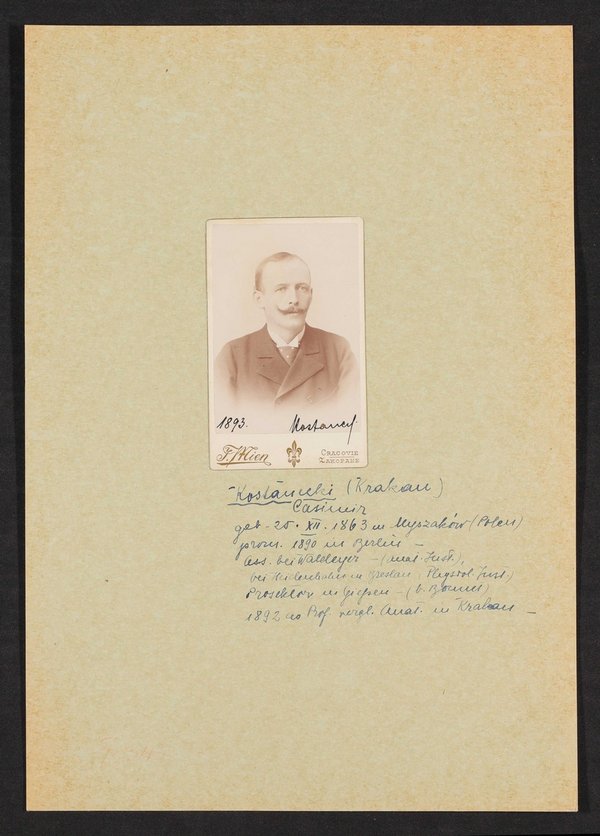 1893. Kostanecki
J. Mien
CRACOVIE
ZAKOPANE
Kostanecki (Krakau)
Casimir
geb. 25. XII. 1863 in Myszaków (Polen)
prom. 1890 in Berlin –
ass. bei Waldeyer – (anat. Inst.),
bei Heidenhain in Breslau, Physiol. Inst.)
Prosektor in Gießen – (b. Bonnet)
1892 ao Prof. vergl. Anat. in Krakau –